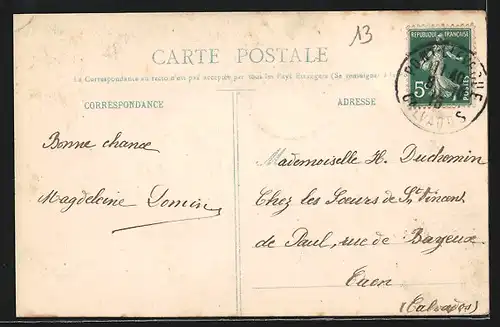 13
CARTE POSTALE
La Correspondance au recto n'est pas acceptée par tous les Pays Etrangers (Se renseigner
CORRESPONDANCE
ADRESSE
REPUBLIQUE FRANÇAISE
5c
POSTES
PONT-L'EVEQUE
CALVADOS
Bonne chance
Magdeleine
Mademoiselle H. Duchemin
Chez les Sœurs de St Vincent
de Paul, rue de Bayeux
Caen
(Calvados)